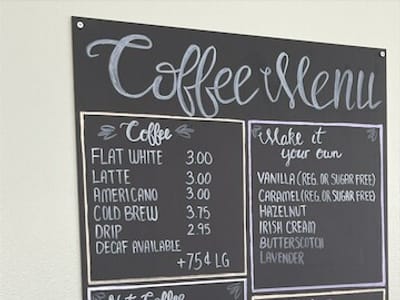 Coffee Menu
Coffee
FLAT WHITE 3.00
LATTE 3.00
AMERICANO 3.00
COLD BREW 3.75
DRIP 2.95
DECAF AVAILABLE
+75¢ LG
Make it
your own
VANILLA (REG. OR SUGAR FREE)
CARAMEL (REG. OR SUGAR FREE)
HAZELNUT
IRISH CREAM
BUTTERSCOTCH
LAVENDER
Not Coffee